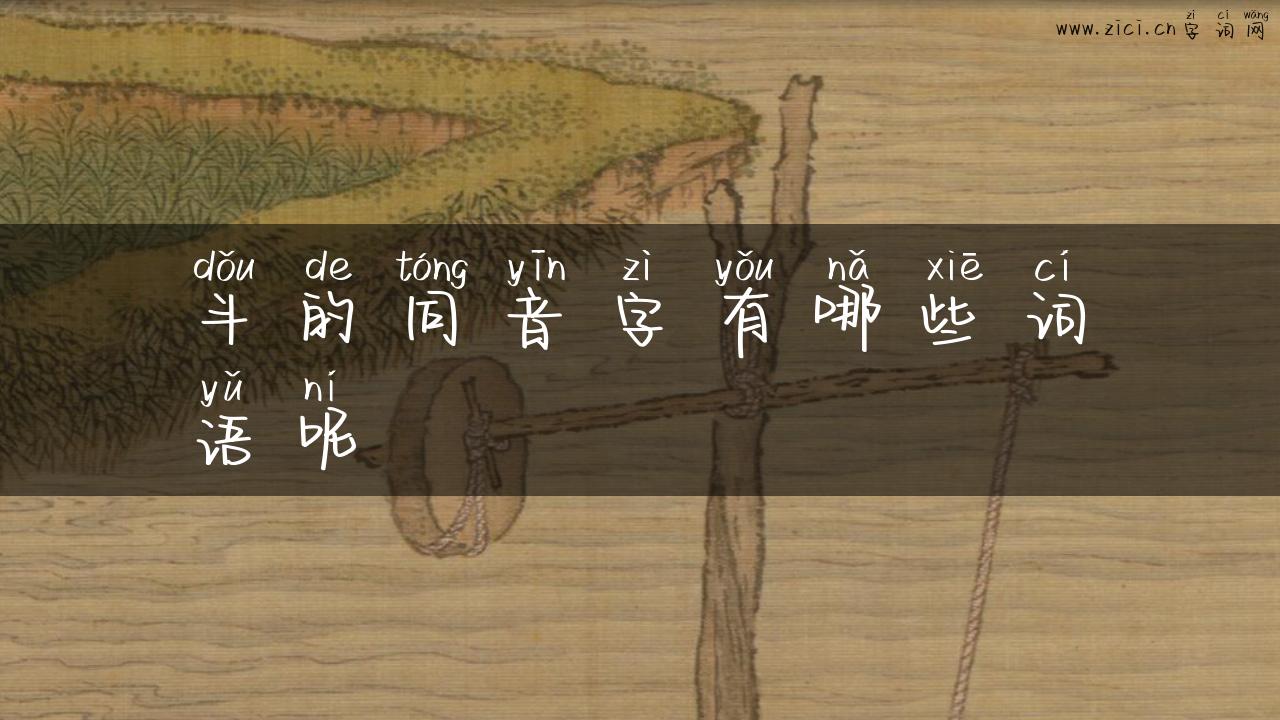 zì cí wǎng
www.zici.cn 字词网
dǒu de tóng yīn zì yǒu nǎ xiē cí
斗的同音字有哪些词
yǔ ní
语呢